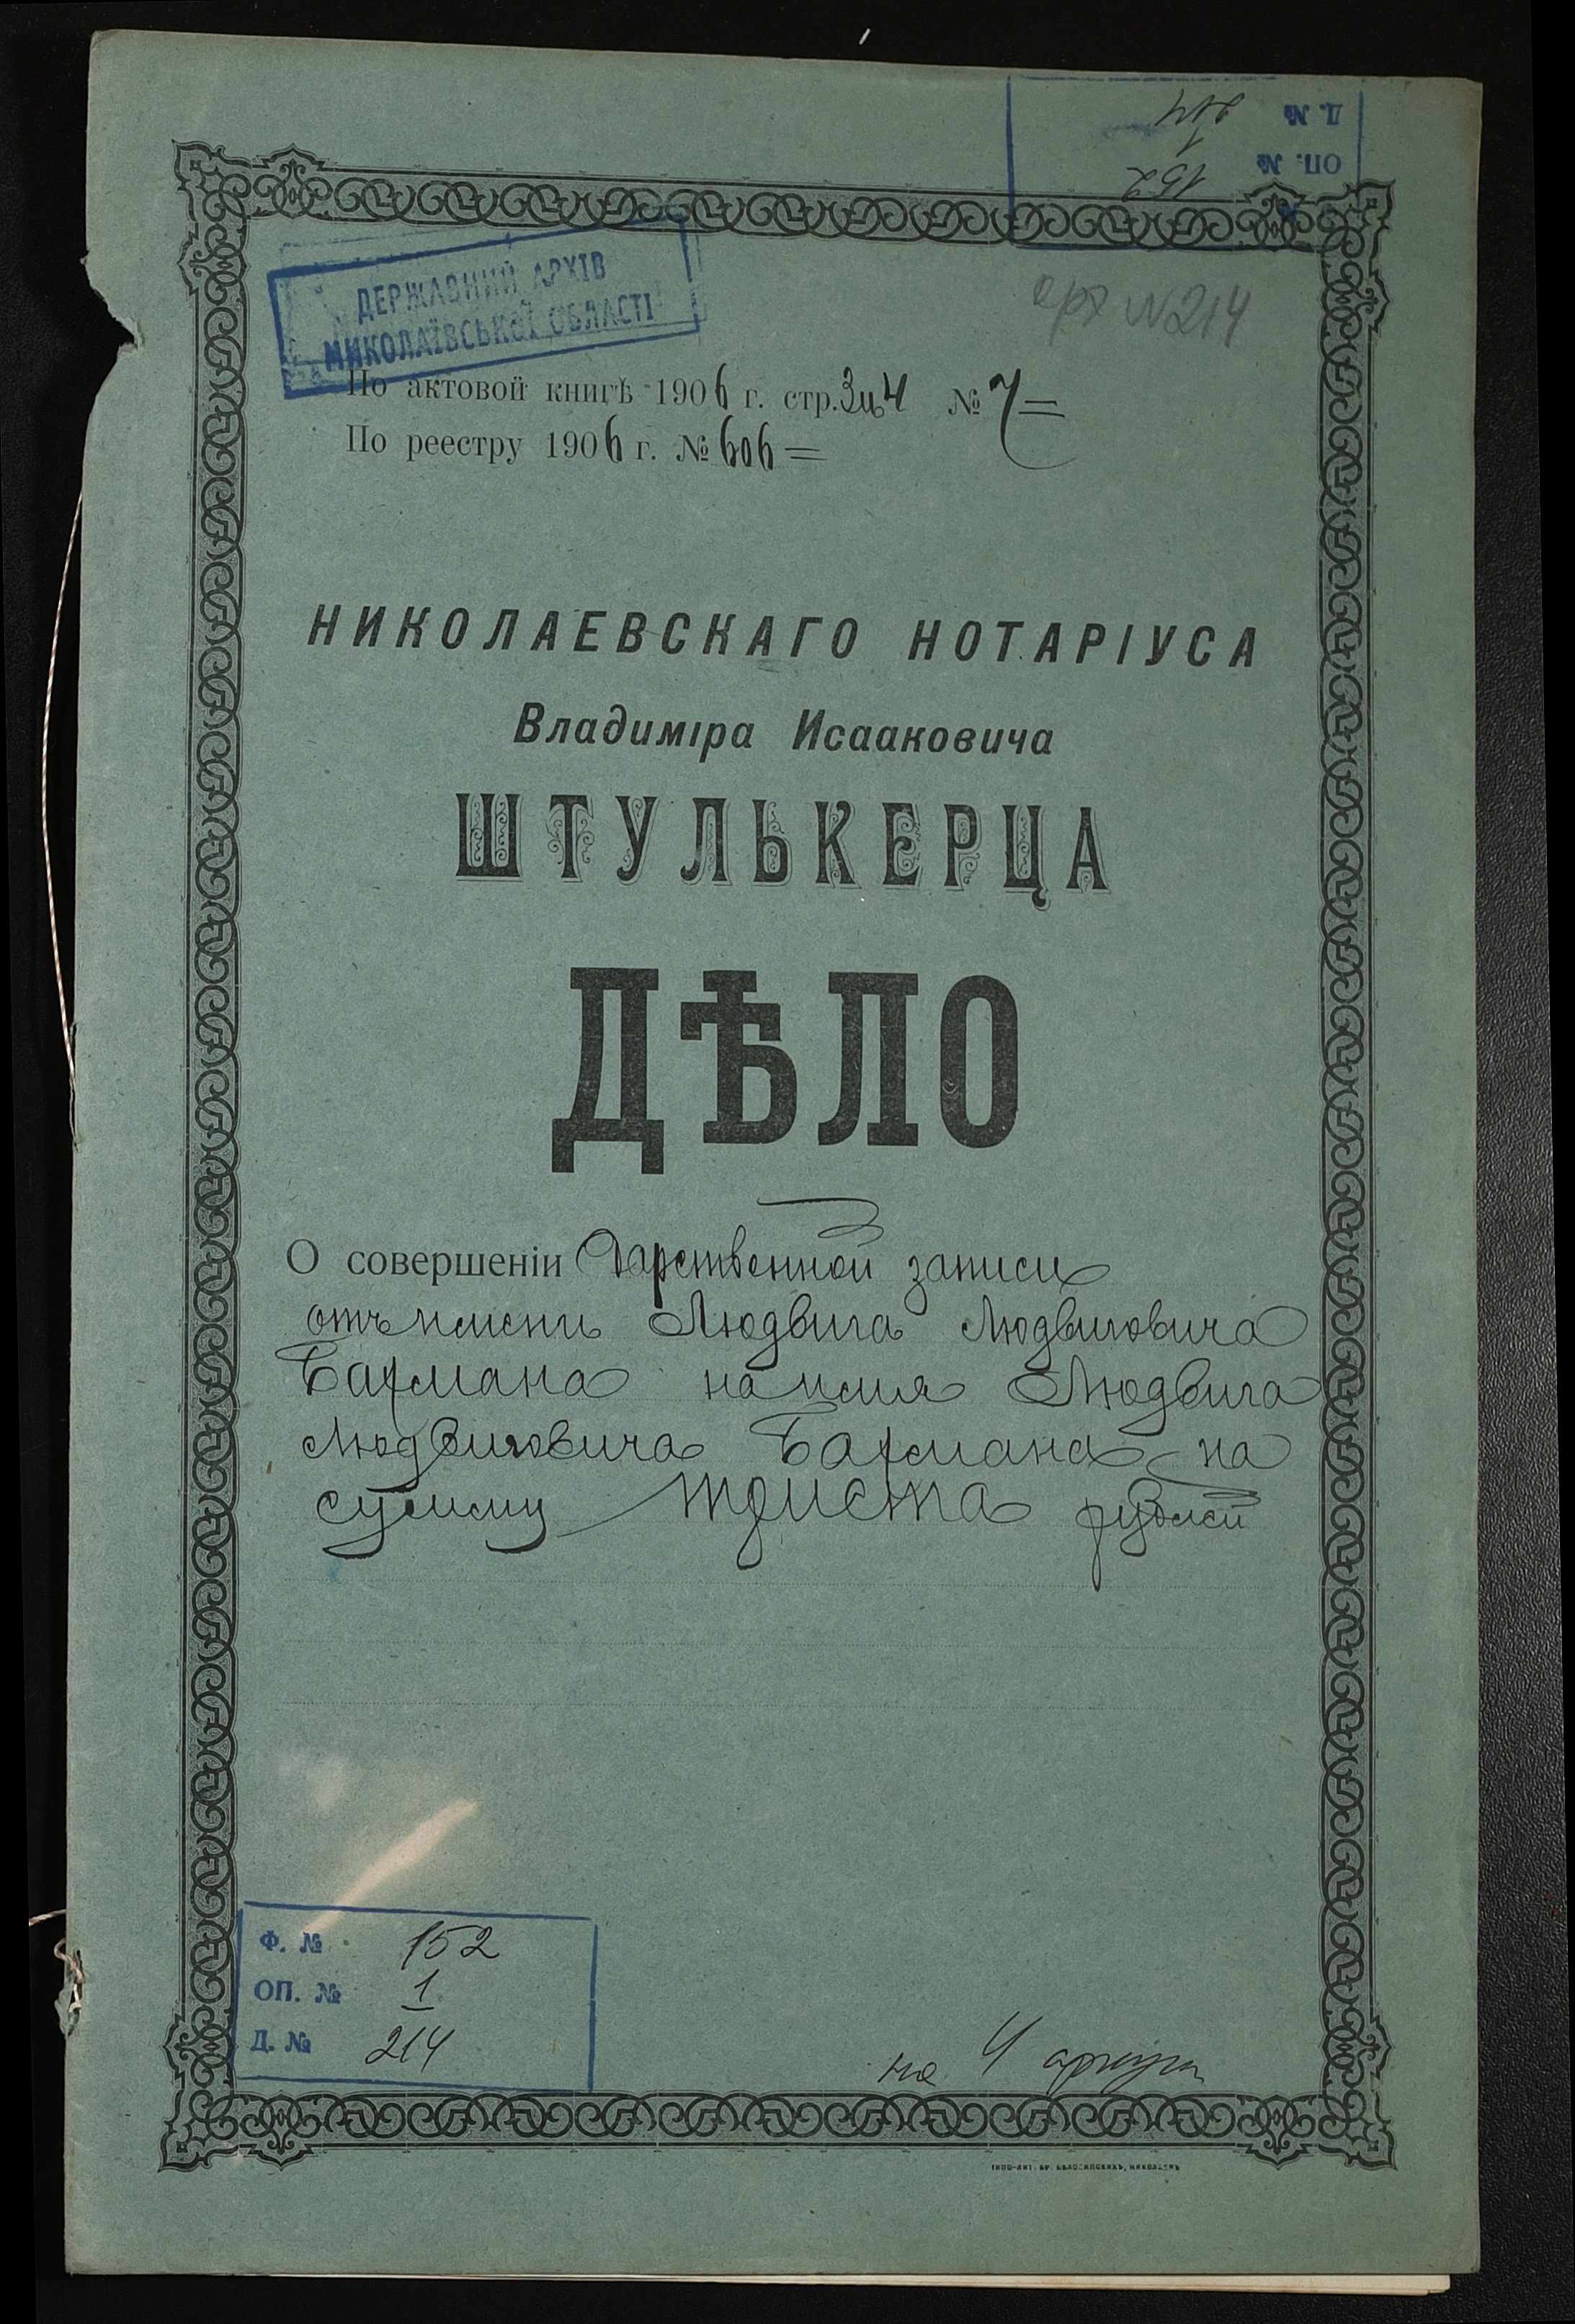 Д. № 214
ОП. № 1
152
ДЕРЖАВНИЙ АРХІВ
МИКОЛАЇВСЬКОЇ ОБЛАСТІ
арх №214
По актовой книгѣ 1906 г. стр. 3 и 4 № 7=
По реестру 1906 г. № 606=
НИКОЛАЕВСКАГО НОТАРІУСА
Владиміра Исааковича
ШТУЛЬКЕРЦА
ДѢЛО
О совершеніи Дарственной записи
отъ имени Людвига Людвиговича
Бахмана на имя Людвига
Людвиговича Бахмана на
сумму триста рублей
Ф. № 152
ОП. № 1
Д. № 214
на 4 аркуш
НИКОЛАЕВЪ